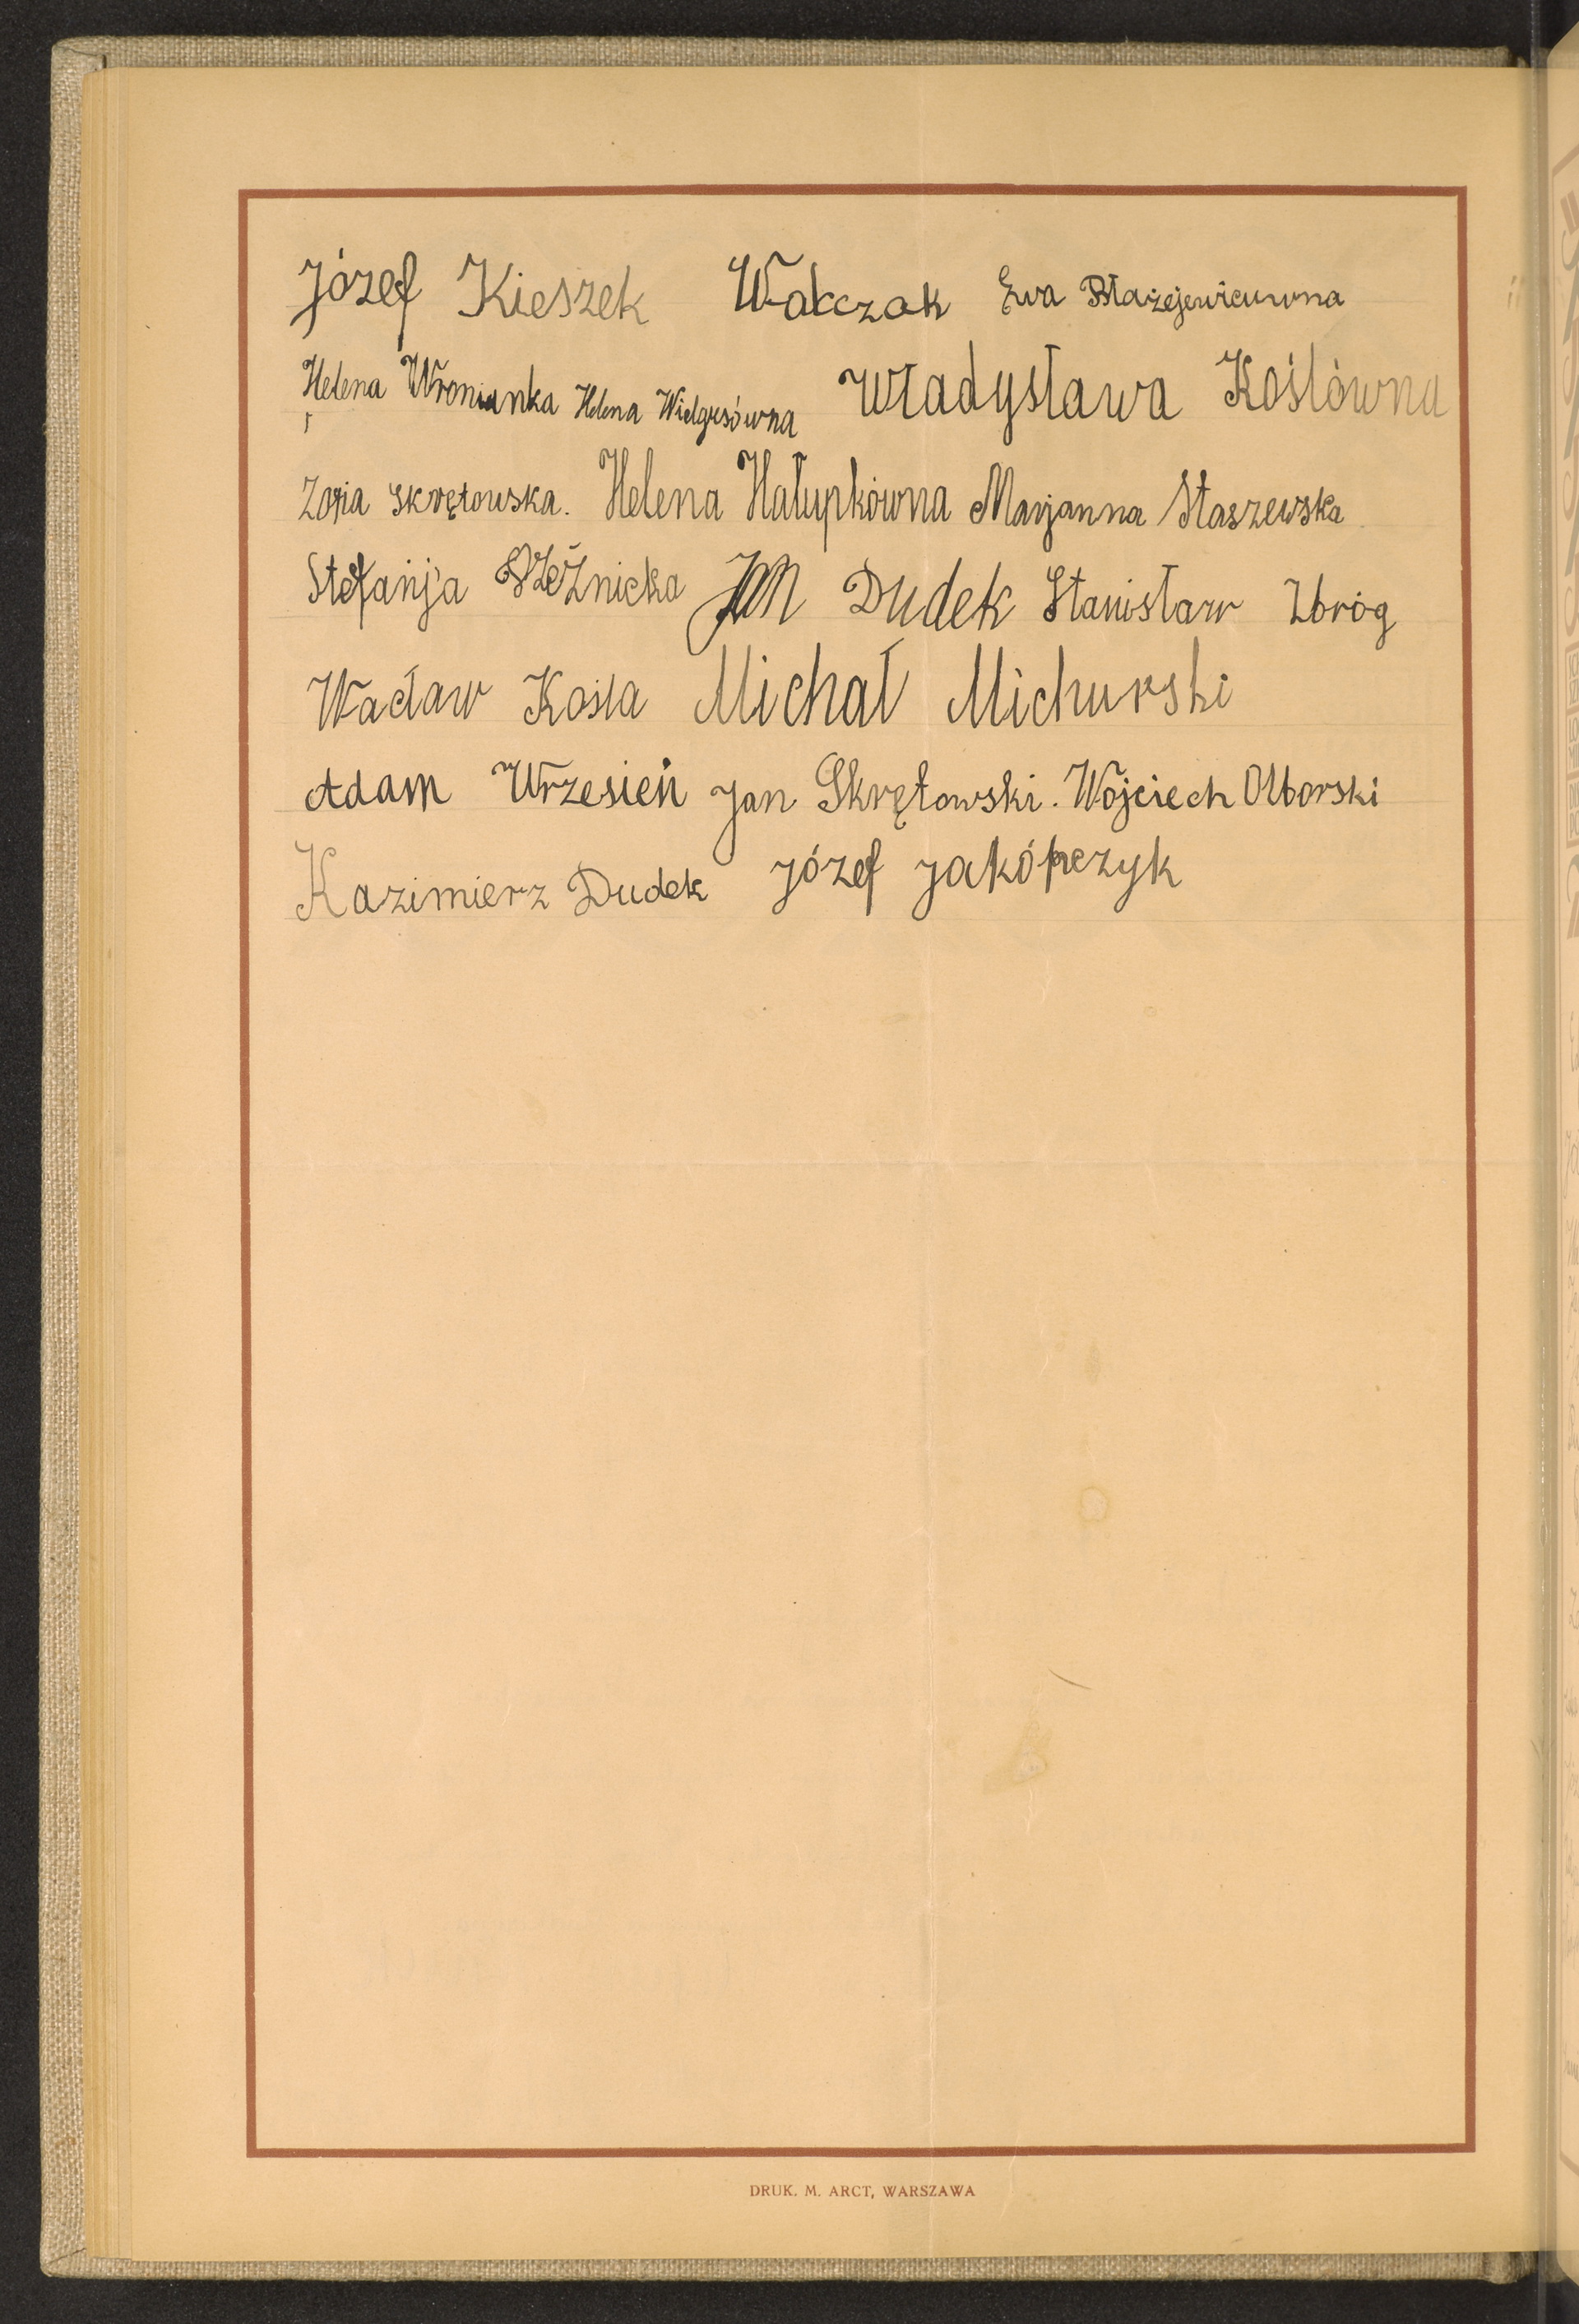 Józef Kieszek Walczak Ewa Błażejewiczuwna
Helena Wronianka Helena Wielgusówna Władysława Koślówna
Zofia Skrętowska. Helena Hałupkówna Marjanna Staszewska
Stefanja Jan Dudek Stanisław Zbróg
Wacław Kośla Michał Michurski
Adam Wrzesień Jan Skrętowski. Wojciech Olborski
Kazimierz Dudek Józef Jakóbczyk
DRUK. M. ARCT, WARSZAWA